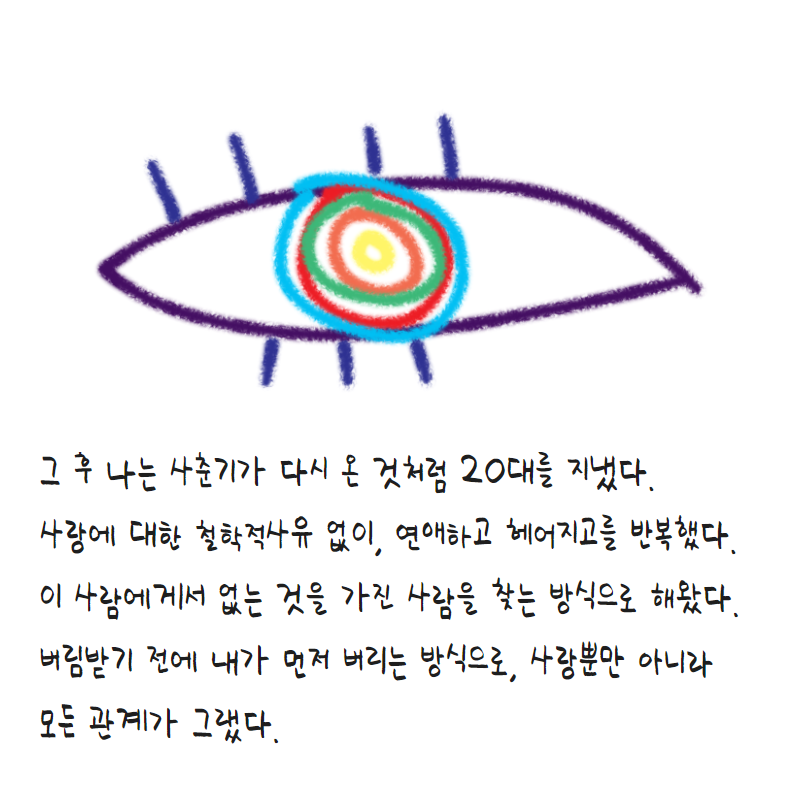 그 후 나는 사춘기가 다시 온 것처럼 20대를 지냈다.
사랑에 대한 철학적사유 없이, 연애하고 헤어지고를 반복했다.
이 사람에게서 없는 것을 가진 사람을 찾는 방식으로 해왔다.
버림받기 전에 내가 먼저 버리는 방식으로, 사랑뿐만 아니라
모든 관계가 그랬다.